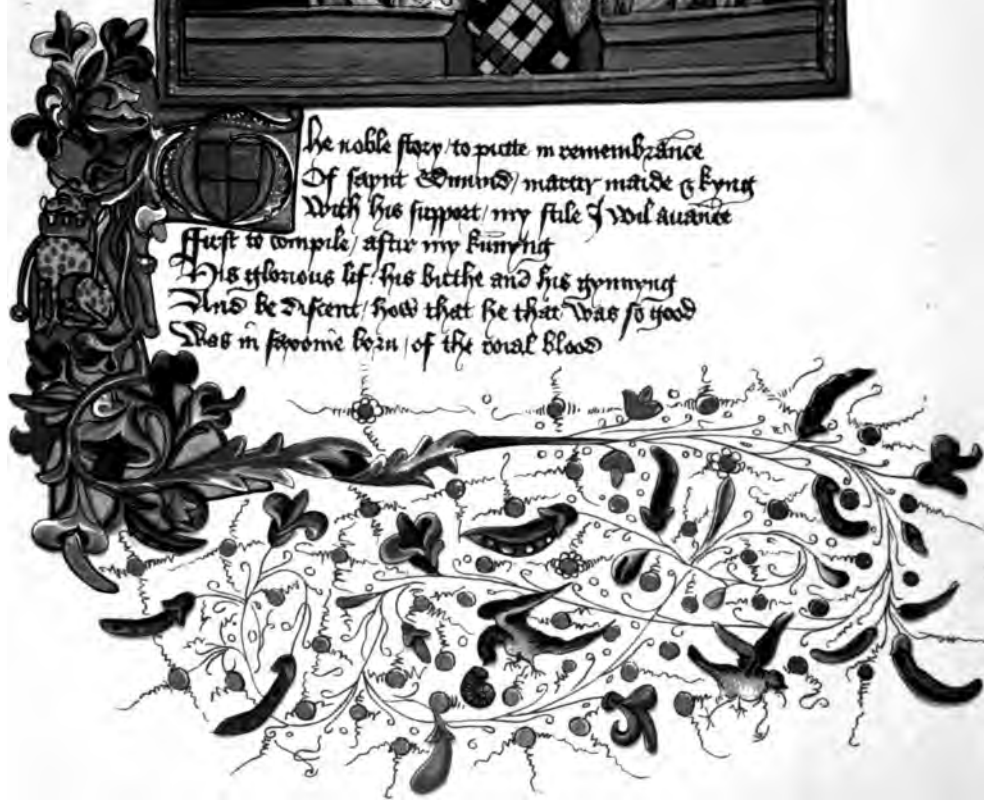 The noble story / to putte in remembrance
Of saynt Edmund / martir maide & kyng
With his support / my stile I wil avance
First to compile / aftir my kunnyng
His glorious lif / his birthe and his gynnyng
And be discent / how that he that was so good
Was in saxonie born / of the roial blood